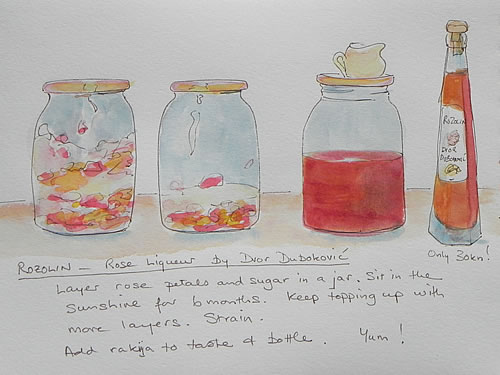 ROZOLIN
DVOR
DUBOKOVIĆ
Only 30kn!
ROZOLIN – Rose Liqueur by Dvor Duboković
Layer rose petals and sugar in a jar. Sit in the
sunshine for 6 months. Keep topping up with
more layers. Strain.
Add rakija to taste & bottle. Yum!